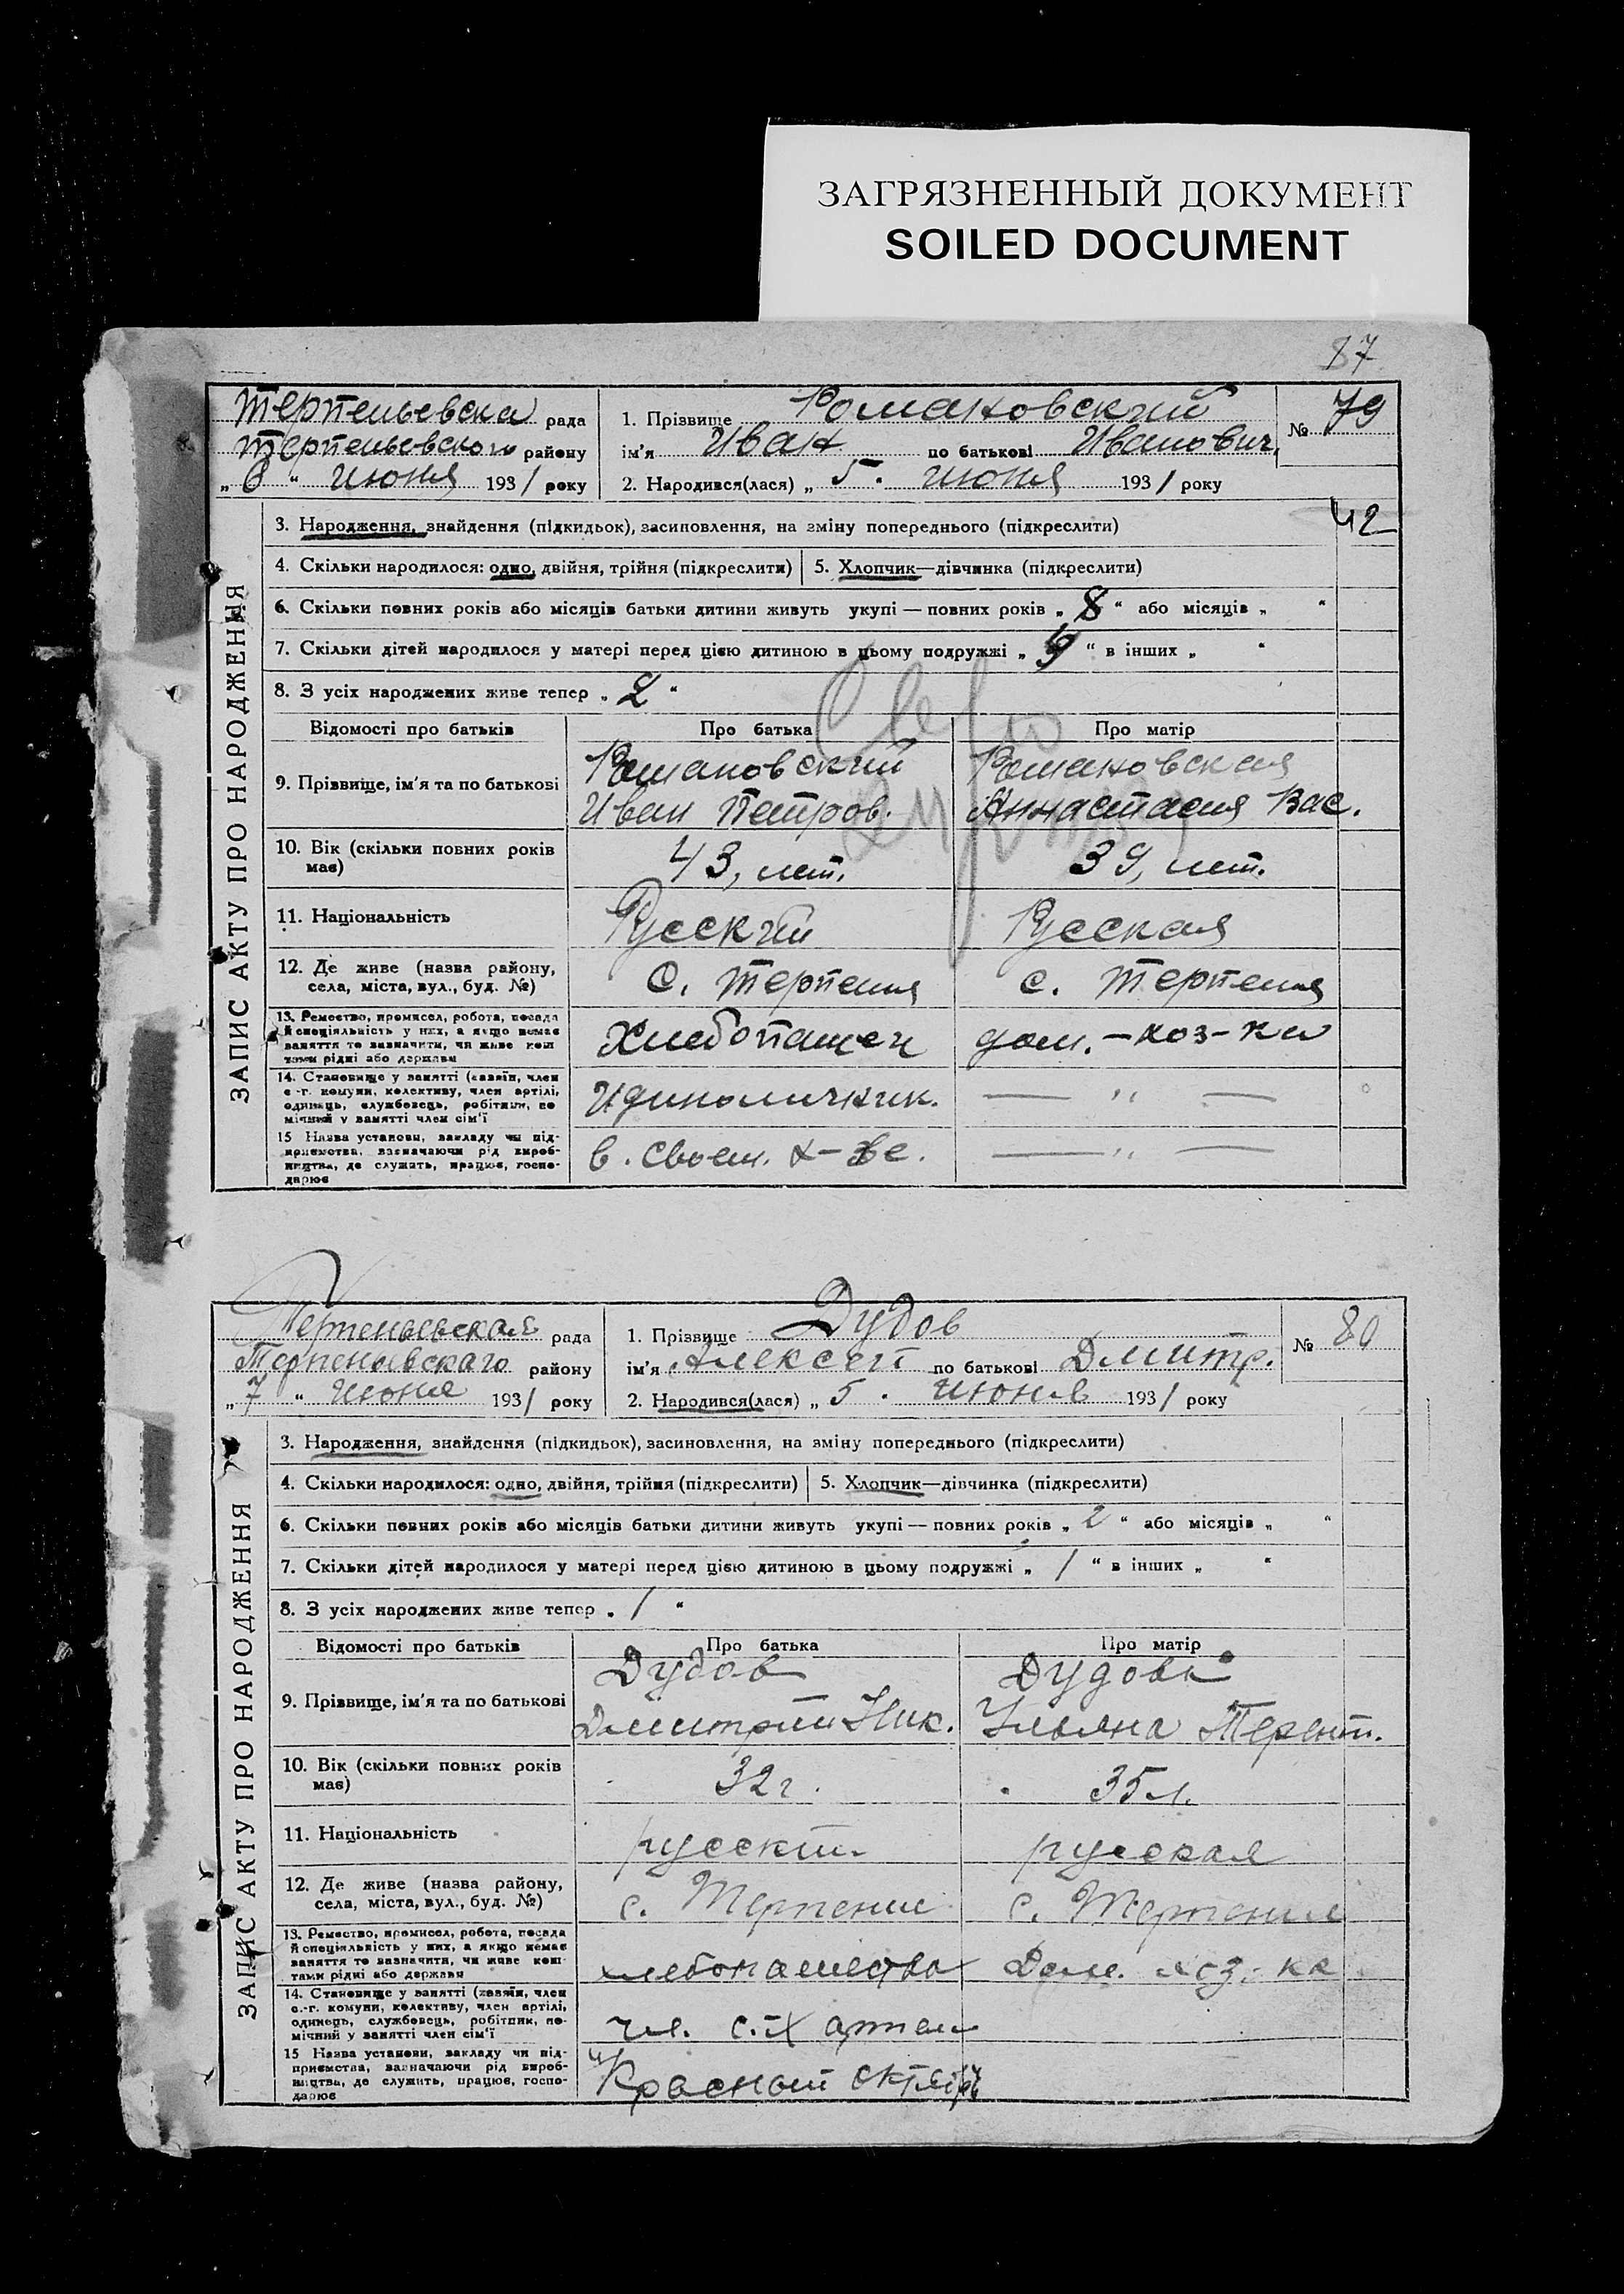 ЗАГРЯЗНЕННЫЙ ДОКУМЕНТ
SOILED DOCUMENT
87
Терпеньевска рада
Терпеньевского району
„ 6 “ Июня 1931 року
1. Прізвище Романовский
ім'я Иван по батькові Иванович,
2. Народився(лася) „ 5. июня 1931 року
№ 79
42
ЗАПИС АКТУ ПРО НАРОДЖЕННЯ
3. Народження, знайдення (підкидьок), засиновлення, на зміну попереднього (підкреслити)
4. Скільки народилося: одно, двійня, трійня (підкреслити) 5. Хлопчик—дівчинка (підкреслити)
6. Скільки повних років або місяців батьки дитини живуть укупі — повних років „ 8 “ або місяців „ “
7. Скільки дітей народилося у матері перед цією дитиною в цьому подружжі „ “ в інших „ “
8. З усіх народжених живе тепер „ 2 “
Відомості про батьків Про батька Про матір
9. Прізвище, ім'я та по батькові
Романовский
Иван Петров.
Романовская
Аннастасия Вас.
10. Вік (скільки повних років
має)
43, лет. 39, лет.
11. Національність Русский Русская
12. Де живе (назва району,
села, міста, вул., буд. №)
С. Терпения с. Терпения
13. Ремество, промисел, робота, посада
й спеціяльність у них, а якщо немає
заняття то зазначити, чи живе кош
тами рідні або держави
Хлебопашец дом.-хоз-ка
14. Становище у занятті (хазяїн, член
с.-г. комуни, колективу, член артілі,
одинець, службовець, робітник, по
мічний у занятті член сім'ї
Идиноличник. — „ —
15 Назва установи, закладу чи під-
приємства, зазначаючи рід вироб-
ництва, де служить, працює, госпо-
дарює
в. своем. х-ве. — „ —
Терпеньевская рада
Терпеньевскаго району
„ 7 “ Июня 1931 року
1. Прізвище Дудов
ім'я Алексей по батькові Дмитр.
2. Народився(лася) „ 5. июня 1931 року
№ 80
ЗАПИС АКТУ ПРО НАРОДЖЕННЯ
3. Народження, знайдення (підкидьок), засиновлення, на зміну попереднього (підкреслити)
4. Скільки народилося: одно, двійня, трійня (підкреслити) 5. Хлопчик—дівчинка (підкреслити)
6. Скільки повних років або місяців батьки дитини живуть укупі — повних років „ 2 “ або місяців „ “
7. Скільки дітей народилося у матері перед цією дитиною в цьому подружжі „ 1 “ в інших „ “
8. З усіх народжених живе тепер „ 1 “
Відомості про батьків Про батька Про матір
9. Прізвище, ім'я та по батькові
Дудов
Дмитрий Ник.
Дудова
Ульяна Терент.
10. Вік (скільки повних років
має)
32 г. 35 л.
11. Національність русский русская
12. Де живе (назва району,
села, міста, вул., буд. №)
с. Терпение с. Терпение
13. Ремество, промисел, робота, посада
й спеціяльність у них, а якщо немає
заняття то зазначити, чи живе кош-
тами рідні або держави
хлебопашество Дом. хоз-ка
14. Становище у занятті (хазяїн, член
с.-г. комуни, колективу, член артілі,
одинець, службовець, робітник, по-
мічний у занятті член сім'ї
чл. с.х артели
15 Назва установи, закладу чи під-
приємства, зазначаючи рід вироб-
ництва, де служить, працює, госпо-
дарює
"Красный октябрь"